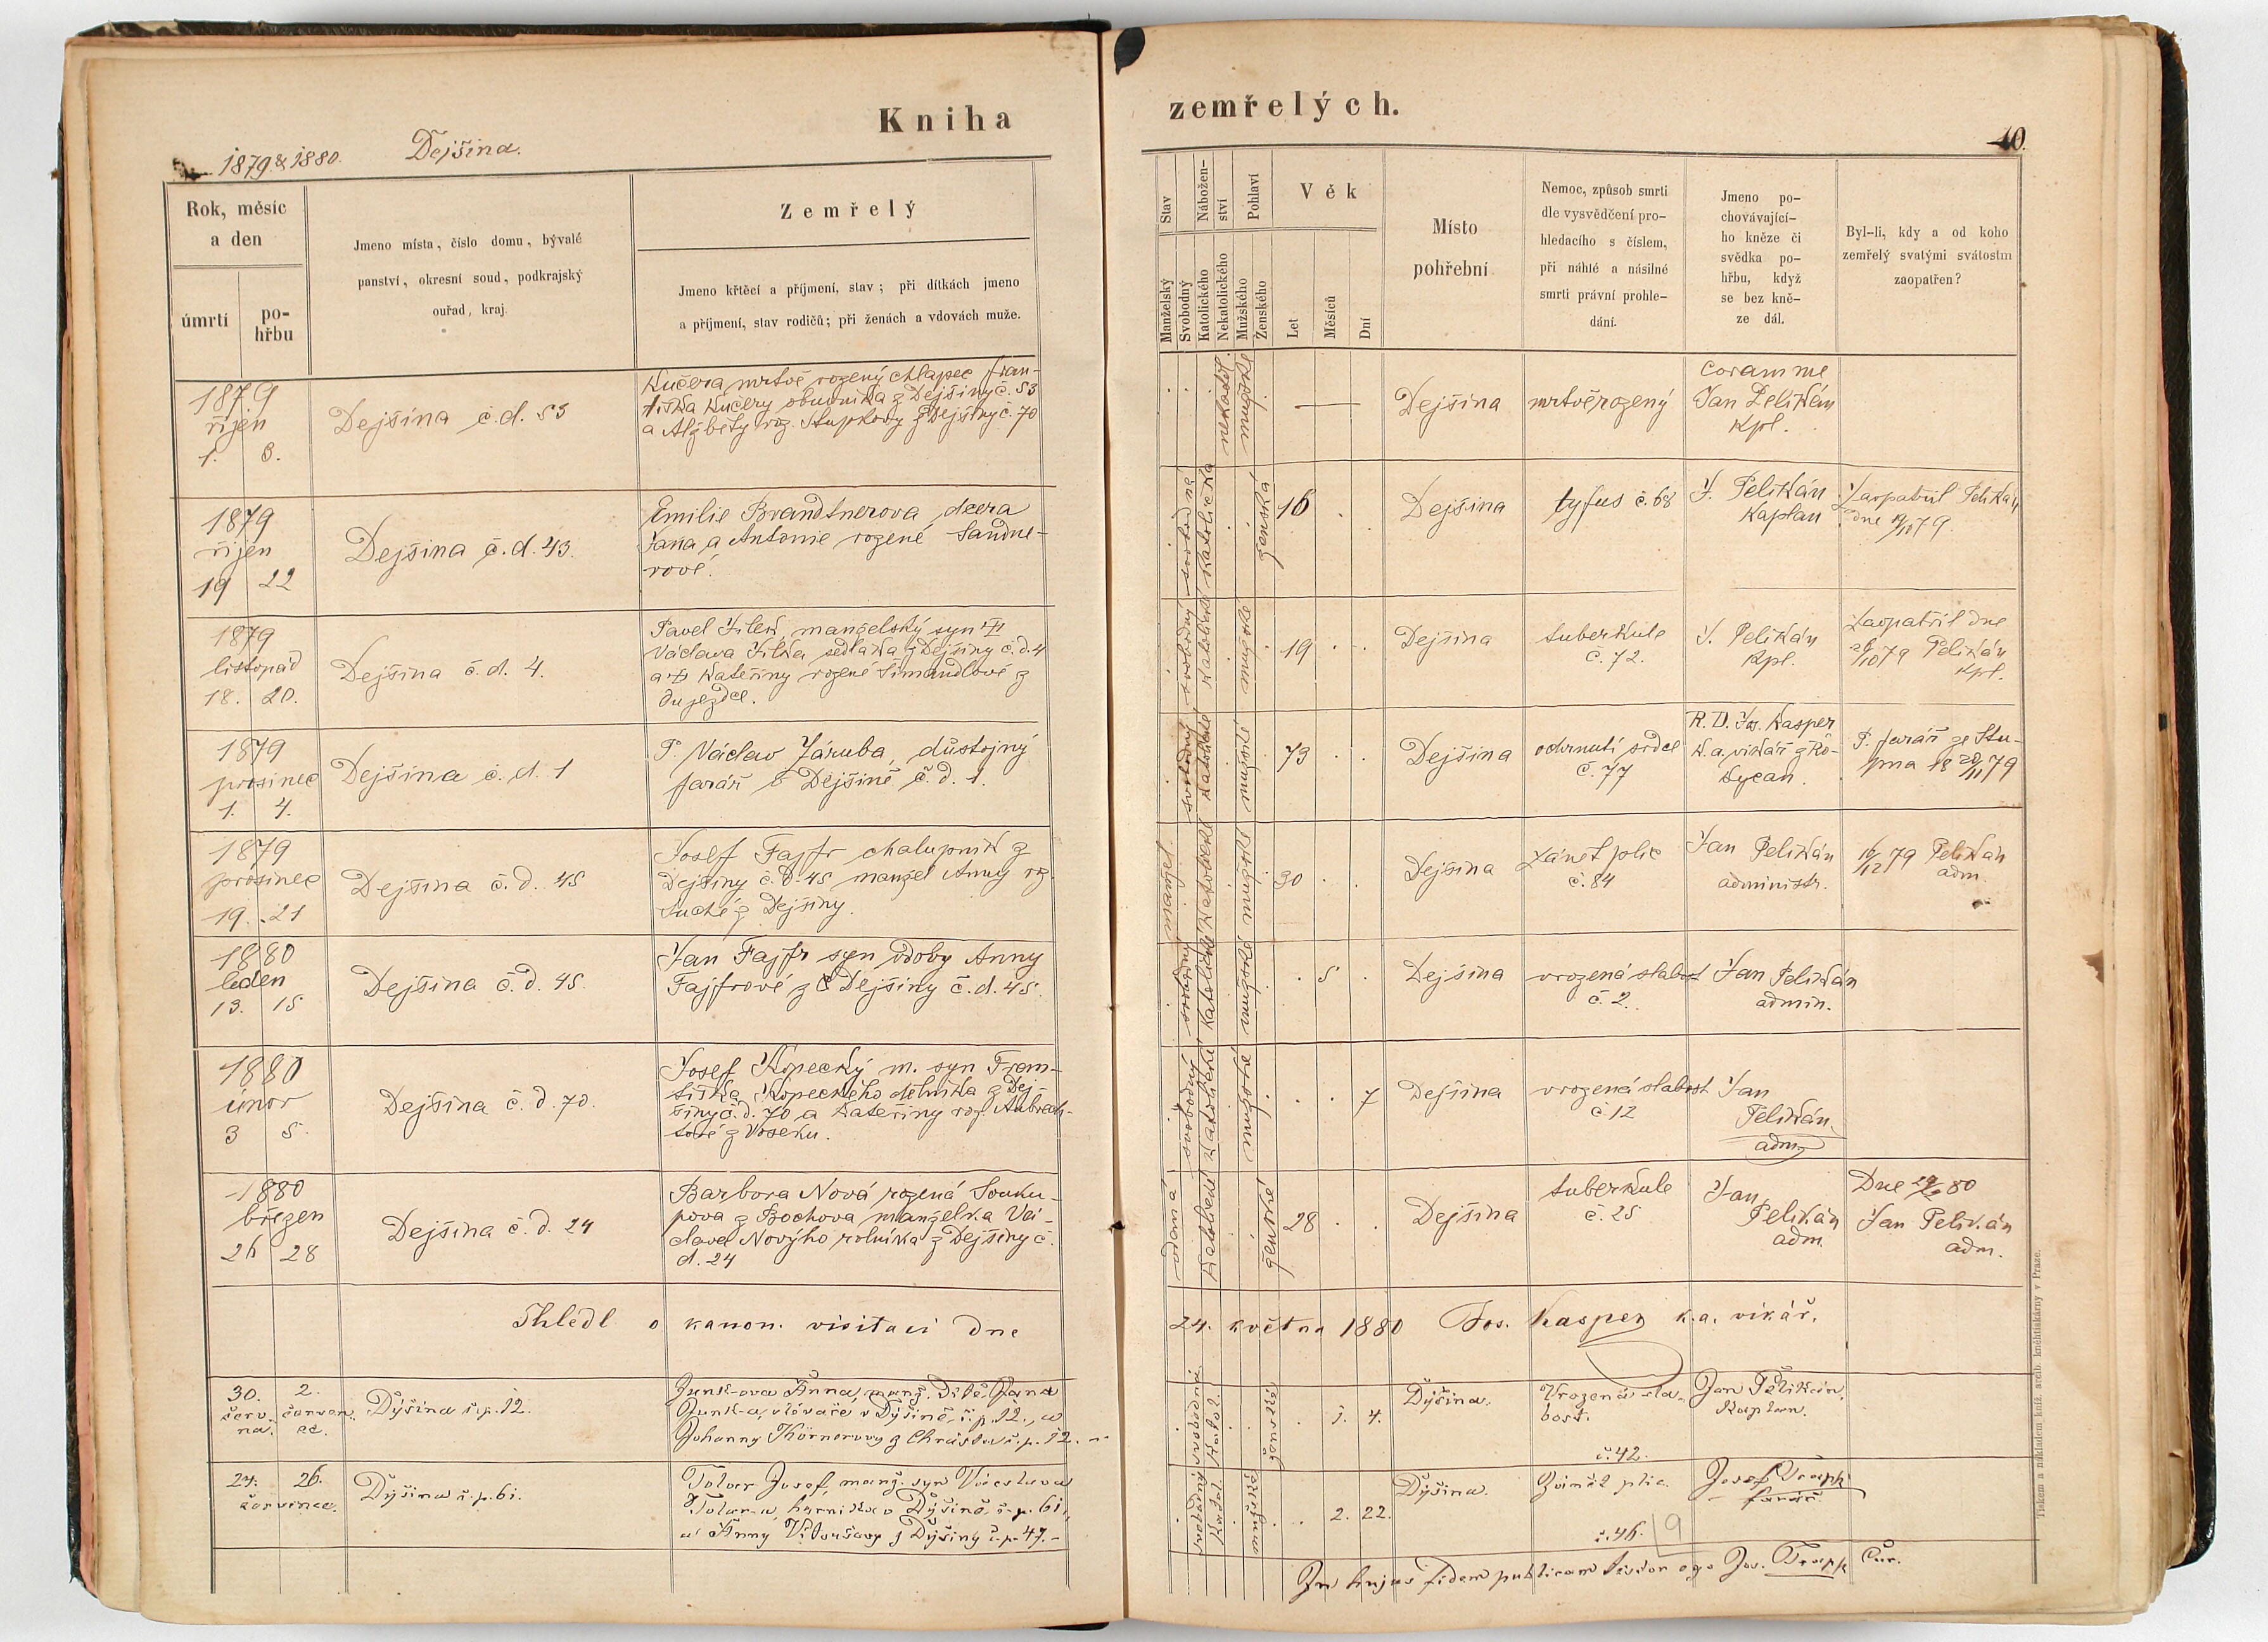 Kniha
zemřelých.
1879 & 1880. Dejšina.
10.
Rok, měsíc
a den
úmrtí
po-
hřbu
Jmeno místa, číslo domu, bývalé
panství, okresní soud, podkrajský
ouřad, kraj.
Zemřelý
Jmeno křtěcí a příjmení, stav; při dítkách jmeno
a příjmení, stav rodičů; při ženách a vdovách muže.
Stav
Manželský
Svobodný
Nábožen-
ství
Katolického
Nekatolického
Pohlaví
Mužského
Ženského
Věk
Let
Měsíců
Dní
Místo
pohřební
Nemoc, způsob smrti
dle vysvědčení pro-
hledacího s číslem,
při náhlé a násilné
smrti právní prohle-
dání.
Jmeno po-
chovávající-
ho kněze či
svědka po-
hřbu, když
se bez kně-
ze dál.
Byl-li, kdy a od koho
zemřelý svatými svátostmi
zaopatřen?
1879
říjen
1. 3.
Dejšina č.d. 53
Kučera mrtvě rozený chlapec Fran-
tiška Kučery obuvníka z Dejšiny č. 53
a Alžběty roz. Stupkovy z Dejšiny č. 70
nekatol.
mužské
Dejšina
mrtvěrozený
coram me
Jan Pelikán
kpl.
1879
říjen
19 22
Dejšina č.d. 43.
Emilie Brandtnerova, dcera
Jana a Antonie rozené Sandne-
rové.
svobodná
katolická
ženská
16
Dejšina
tyfus č. 68
J. Pelikán
kaplan
Zaopatřil Pelikán
dne 19/10 79.
1879
listopad
18. 20.
Dejšina č.d. 4.
Pavel Jílek, manželský syn
Václava Jílka sedláka z Dejšiny č.d. 4
a Kateřiny rozené Šimandlové z
Oujezdce.
svobodný
katolické
mužské
19
Dejšina
tuberkule
č. 72.
J. Pelikán
kpl.
Zaopatřil dne
26/10 79 Pelikán
kpl.
1879
prosinec
1. 4.
Dejšina č.d. 1
P. Václav Záruba, důstojný
farář v Dejšině č.d. 1.
svobodný
katolické
mužské
73
Dejšina
ochrnutí srdce
č. 77
R. D. Jos. Kasper
k.a. vikář z Ro-
kycan.
P. farář ze Stu-
pna 18 20/11 79
1879
prosinec
19. 21
Dejšina č.d. 45
Josef Fajfr chalupník z
Dejšiny č.d. 45 manžel Anny roz.
Suché z Dejšiny.
manžel
katolické
mužské
30
Dejšina
Zánět plic
č. 84
Jan Pelikán
administr.
16/12 79 Pelikán
adm.
1880
leden
13. 15
Dejšina č.d. 45.
Jan Fajfr syn vdovy Anny
Fajfrové z Dejšiny č.d. 45.
svobodný
katolické
mužské
5
Dejšina
vrozená slabost
č. 2.
Jan Pelikán
admin.
1880
únor
3 5.
Dejšina č.d. 70.
Josef Kopecký m. syn Fran-
tiška Kopeckého dělníka z Dej-
šiny č.d. 70 a Kateřiny roz. Aubrech-
tové z Voseku.
svobodný
katolické
mužské
7
Dejšina
vrozená slabost
č 12
Jan
Pelikán
adm.
1880
březen
26 28
Dejšina č.d. 24
Barbora Nová rozená Souku-
pova z Bochova manželka Vá-
clava Nového rolníka z Dejšiny č.
d. 24
vdaná
katolické
ženské
28
Dejšina
tuberkule
č. 25
Jan
Pelikán
adm.
Dne 80
Jan Pelikán
adm.
Shledl o kanon. visitaci dne 24. května 1880 Jos. Kasper k.a. vikář.
30. 2.
červ- červen-
na. ec.
Dýšina č.p. 12.
Junk-ova Anna, manž. dítě Jana
Junk-a, slévače v Dýšině, č.p. 12., a
Johanny Körnerovy z Chrástu č.p. 12. -
svobodná
katol.
ženské
1. 4.
Dýšina.
Vrozená sla-
bost.
č. 42.
Jan Pelikán,
Kaplan.
24. 26.
července.
Dýšina č.p. 61.
Tolar Josef, manž. syn Václava
Tolar-a, horníka v Dýšině, č.p. 61.,
a Anny Vitoušovy z Dýšiny č.p. 47. -
svobodný
Katol.
mužské
2. 22.
Dýšina.
Zánět plic.
č. 46.
9
Josef Trapp
farář.
In hujus fidem publicam testor ego Jos. Trapp Cur.
Tiskem a nákladem kníž. arcib. knihtiskárny v Praze.